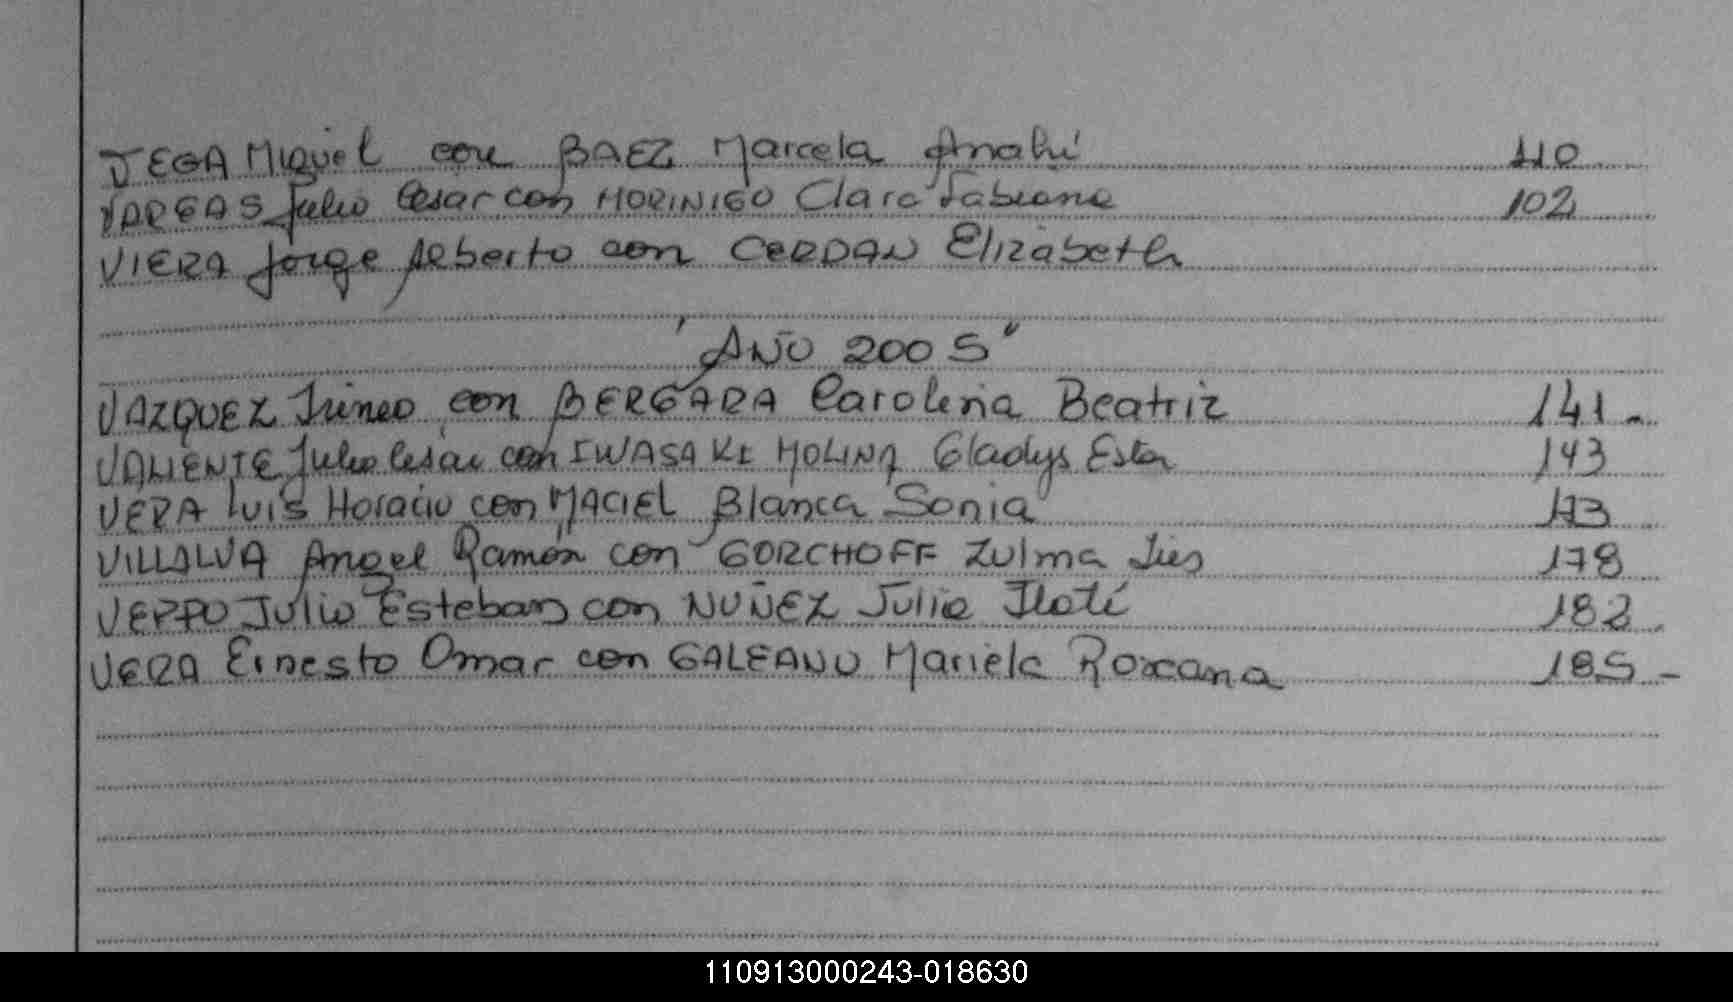 VEGA Miguel con BAEZ Marcela Anahí 110
VARGAS Julio Cesar con MORINIGO Clara Fabiana 102
VIERA Jorge Alberto con CERDAN Elizabeth
"AÑO 2005"
VAZQUEZ Irineo con BERGARA Carolina Beatriz 141-
VALIENTE Julio Cesar con IWASAKI MOLINA Gladys Ester 143
VERA Luis Horacio con MACIEL Blanca Sonia 173
VILLALVA Angel Ramón con GORCHOFF Zulma Ines 178
Julio Esteban con NUÑEZ Julia Itatí 182
VERA Ernesto Omar con GALEANO Mariela Roxana 185-
110913000243-018630